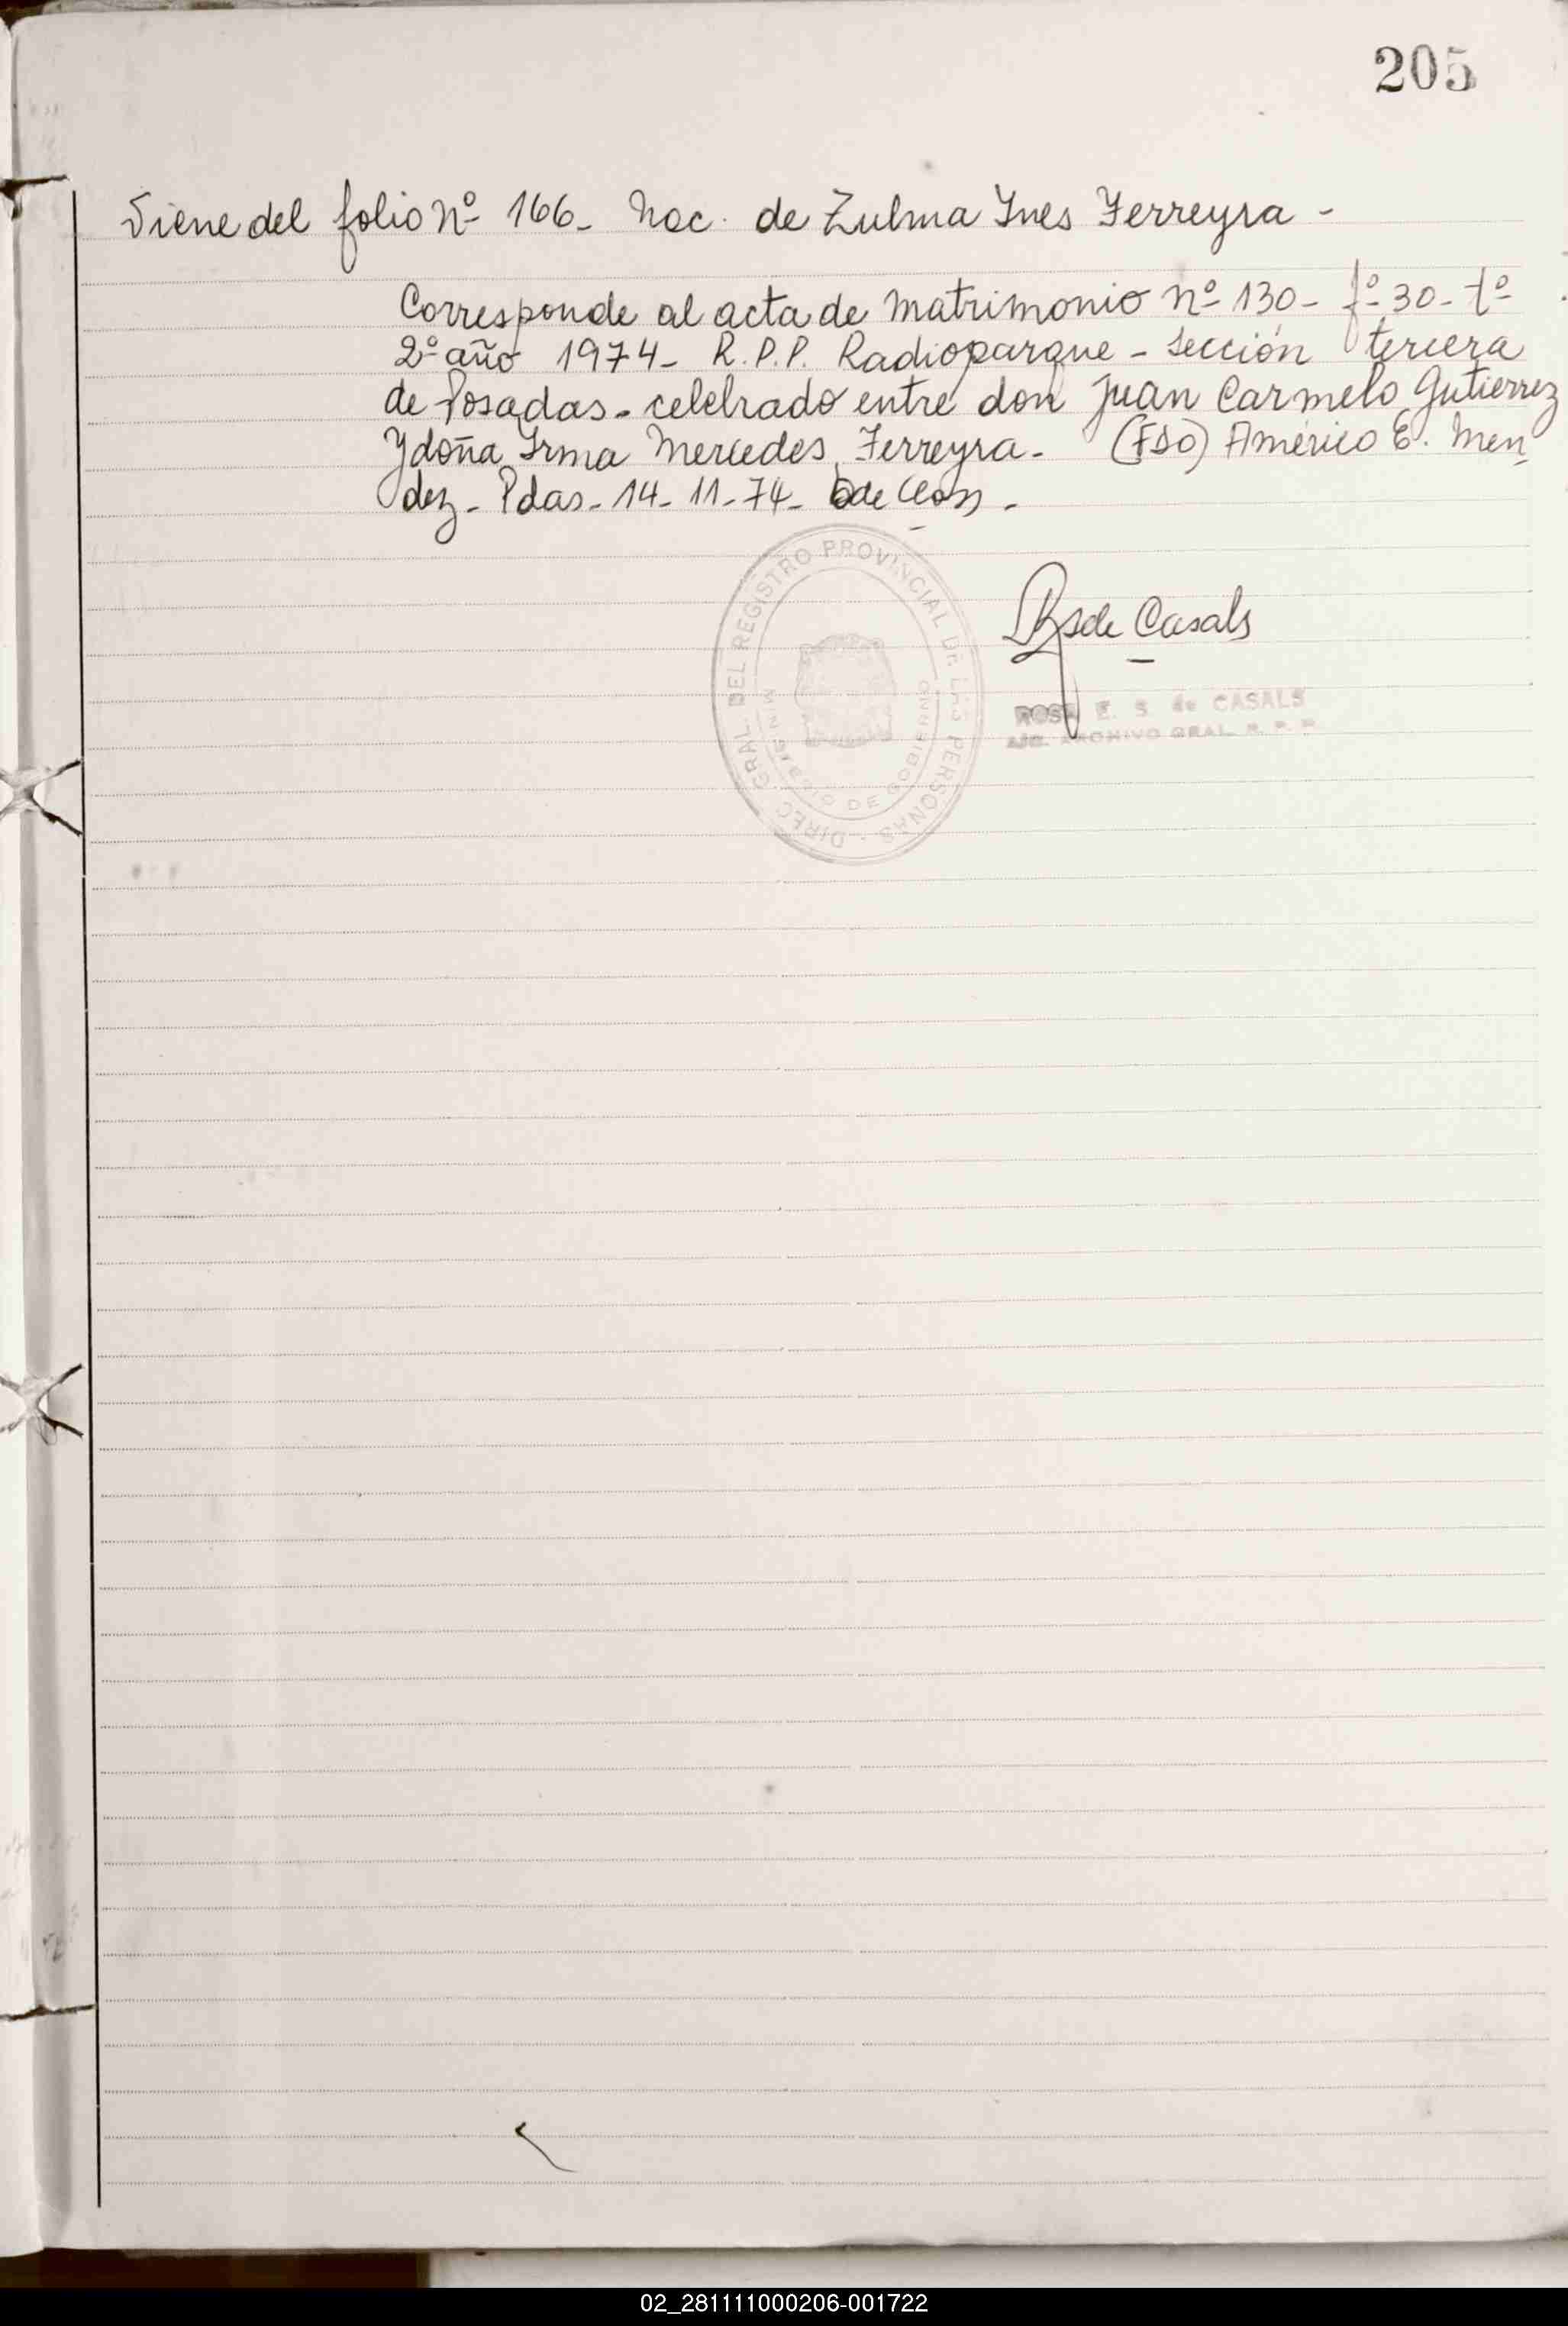 205
Viene del folio nº 166_ Nac. de Zulma Ines Ferreyra -
Corresponde al acta de matrimonio nº 130_ fº 30_ tº
2º año 1974_ R.P.P. Radioparque - sección tercera
de Posadas - celebrado entre don Juan Carmelo Gutierrez
Y doña Irma Mercedes Ferreyra - (FDO) Américo E. Men
dez_ Pdas_ 14_ 11_ 74_ de
de Casals
DIREC. GRAL. DEL REGISTRO PROVINCIAL DE LAS PERSONAS
MINISTERIO DE GOBIERNO
ROSA E. S. de CASALS
ARCHIVO GRAL. R. P. P.
02_281111000206-001722